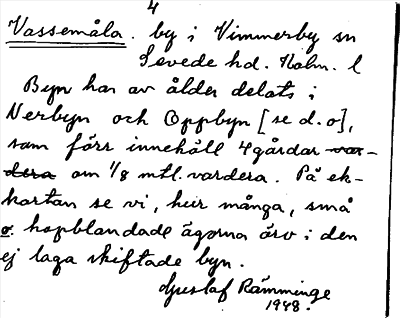 4
Vassemåla. by i Vimmerby sn
Sevede hd. Kalm. l
Byn har av ålder delats i
Nerbyn och Oppbyn [se d.o],
som förr innehöll 4 gårdar var-
dera om 1/8 mtl. vardera. På ek-
kartan se vi, hur många, små
o. hopblandade ägorna äro i den
ej laga skiftade byn.
Gustaf Rämminge
1948.